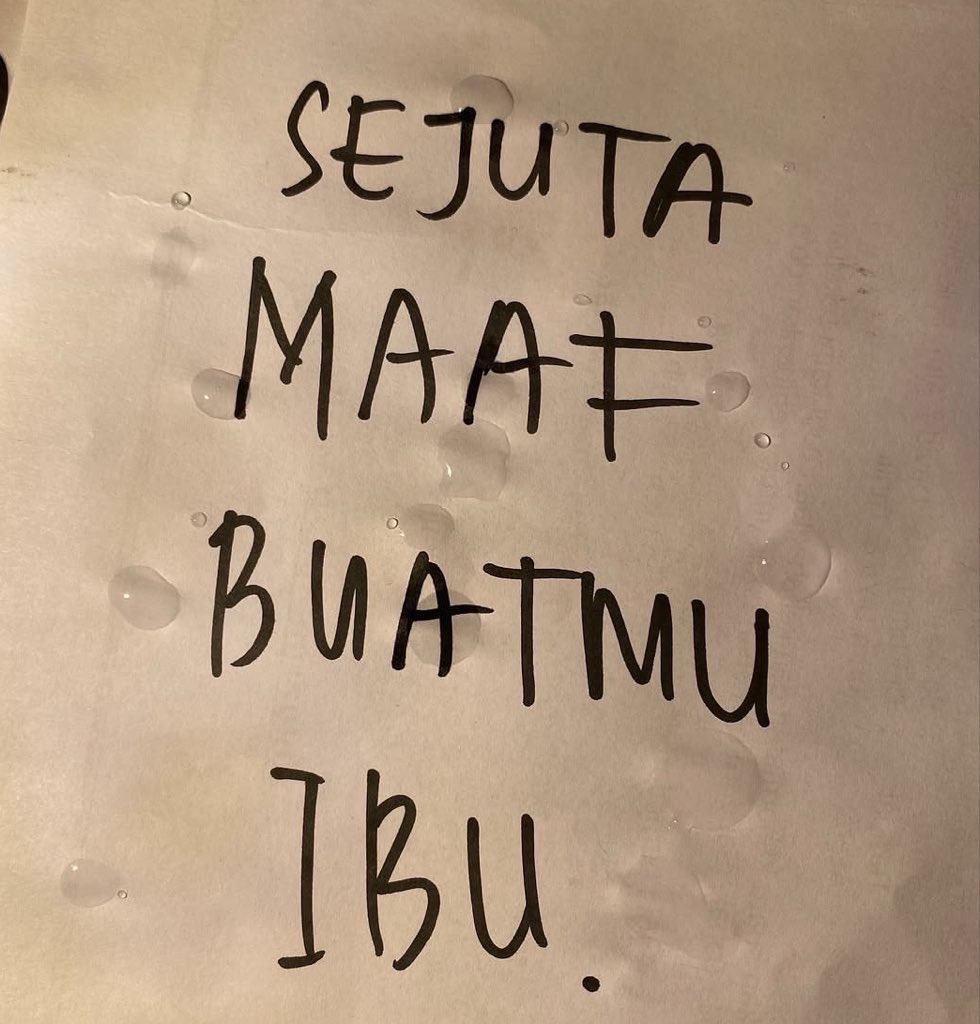 SEJUTA
MAAF
BUATMU
IBU.